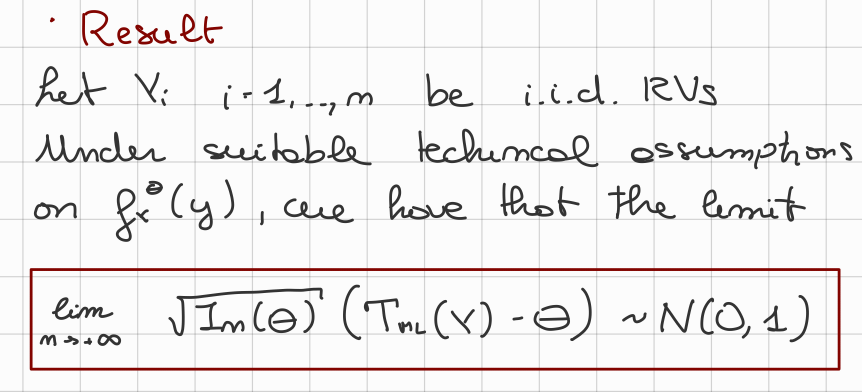 · Result
Let Yi i=1,..,n be i.i.d. RVs
Under suitable technical assumptions
on f_Y^θ(y), we have that the limit
lim n→+∞ √I_n(θ) (T_ML(Y) - θ) ~ N(0,1)